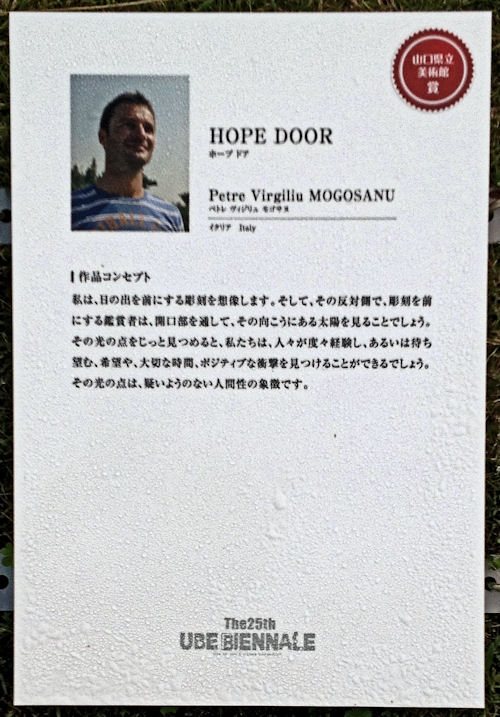 山口県立
美術館
賞
HOPE DOOR
ホープ ドア
Petre Virgiliu MOGOSANU
ペトレ ヴィジリュ モゴサヌ
イタリア Italy
作品コンセプト
私は、日の出を前にする彫刻を想像します。そして、その反対側で、彫刻を前
にする鑑賞者は、開口部を通して、その向こうにある太陽を見ることでしょう。
その光の点をじっと見つめると、私たちは、人々が度々経験し、あるいは待ち
望む、希望や、大切な時間、ポジティブな衝撃を見つけることができるでしょう。
その光の点は、疑いようのない人間性の象徴です。
The25th
UBE BIENNALE